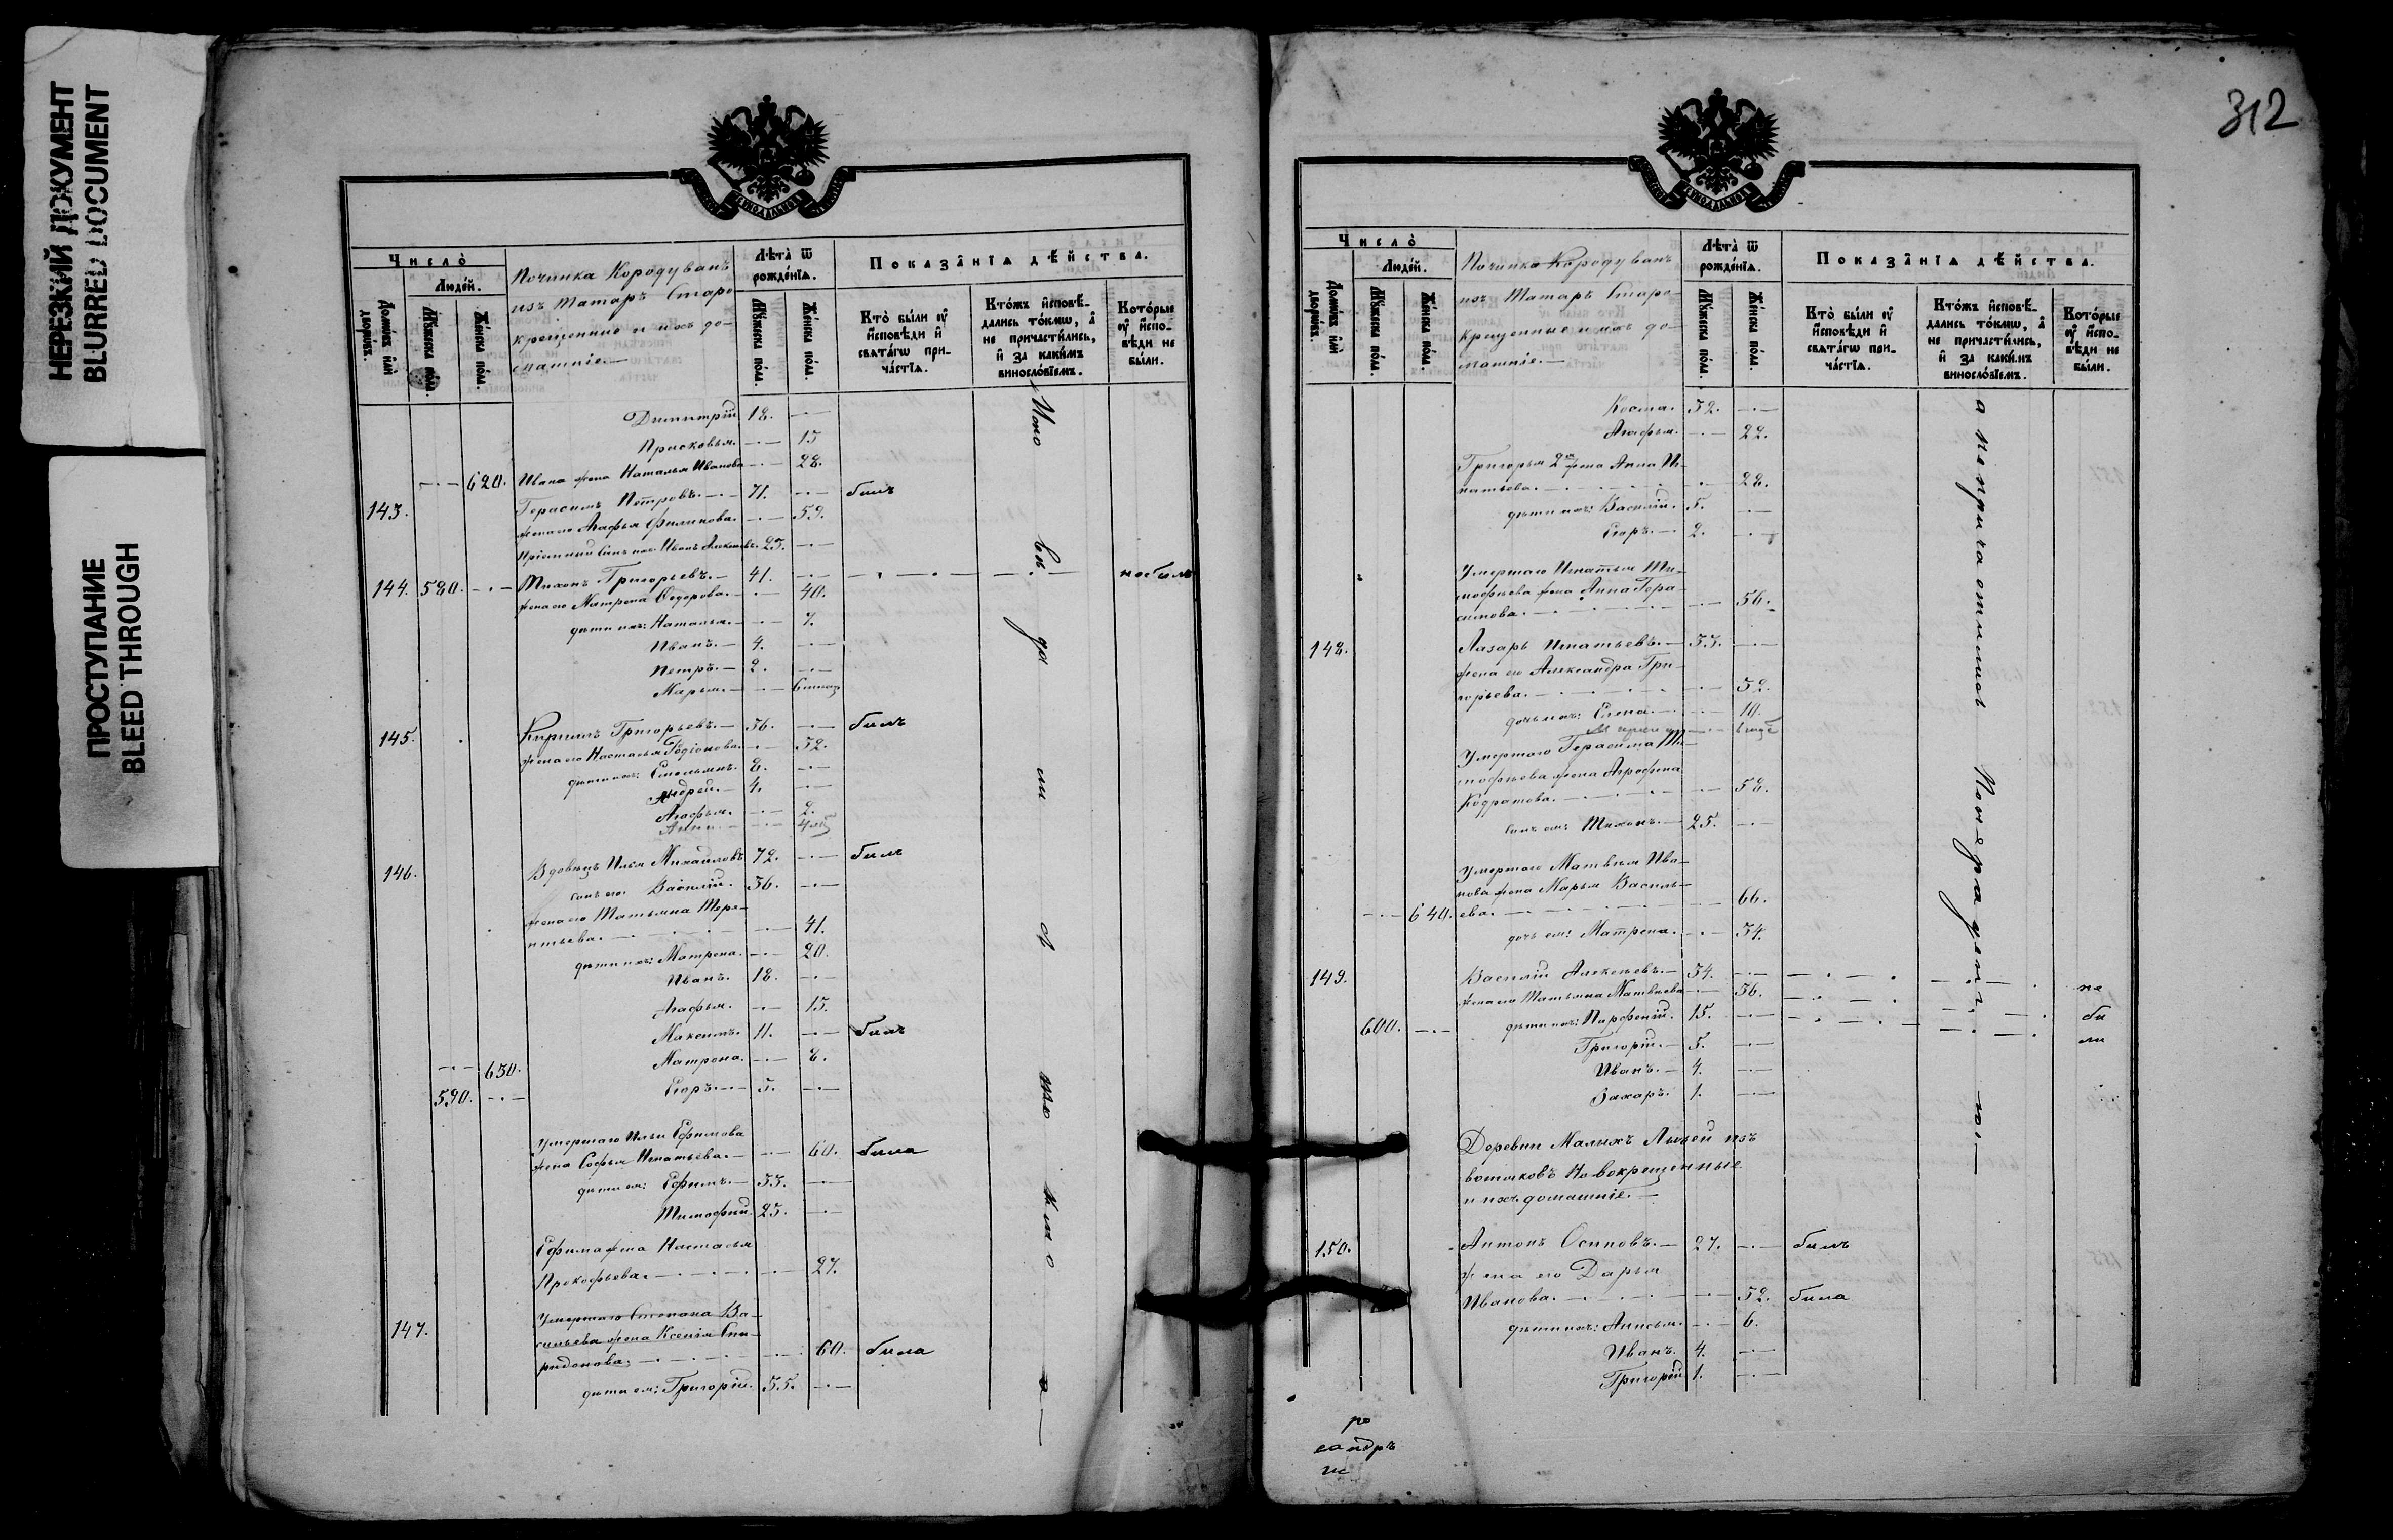 НЕРЕЗКИЙ ДОКУМЕНТ
BLURRED DOCUMENT
ПРОСТУПАНИЕ
BLEED THROUGH
Число̀
Людéй.
Домѡвъ илѝ дворѡвъ.
Мꙋжеска пола.
Женска пола.
Починка Кородуванъ
изъ Татаръ Старо
крещенные и ихъ до-
машніе.—
Лѣта̀ ѿ рождéнїѧ.
Мꙋжеска пола.
Женска пола.
Показа̑нїѧ дѣ́йства.
Кто̀ бы́ли ᲂу҆
и҆спові́ди и҆
свѧта́гѡ при-
ча́стїѧ.
Кто́жъ и҆сповѣ́-
дались то́кмѡ, а҆
не причасти́лись,
и҆ за каки́мъ
винослóвїемъ.
Кото́рые
ᲂу҆ и҆спо-
вѣди не
бы́ли.
Димитрій 18. —
Присковья. — 15
620. Ивана жена Наталья Иванова — 28.
143. Герасимъ Петровъ. 71. — былъ
жена его Агафья Филипова. — 59.
Пріемный сынъ ихъ Иванъ 25. —
144. 580. Тихонъ Григорьевъ. 41. — небылъ
жена его Матрена Ѳедорова. — 40.
дѣти ихъ: Наталья. — 7.
Иванъ. 4. —
Петръ. 2. —
Марья. —
145. Кириллъ Григорьевъ. 36. — былъ
жена его Настасья Родіонова. — 32.
дѣти ихъ: Емельянъ. 8. —
Андрей. 4. —
Агафья. — 2.
Анна —
146. Вдовецъ Илья Михайловъ 72. — былъ
сынъ его. Василій. 36. —
жена его Татьяна Тере-
нтьева. — 41.
дѣти ихъ: Матрена. — 20.
Иванъ. 18. —
Агафья. — 15.
Максимъ. 11. — былъ
630. Матрена. — 8.
590. Егоръ. 5. —
Умершаго Ильи Ефимова
жена Софья Игнатьева. — 60. была
дѣти ея: Ефимъ. 33. —
Тимофей. 25. —
Ефима жена Настасья
Прокофьева. — 27.
147. Умершаго Степана Ва-
сильева жена Ксенія Спи-
ридонова. — 60. была
дѣти ея: Григорій. 35. —
312
Число̀
Людéй.
Домѡвъ илѝ дворѡвъ.
Мꙋжеска пола.
Женска пола.
Починка Кородуванъ
изъ Татаръ Старо
крещенные и ихъ до-
машніе.—
Лѣта̀ ѿ рождéнїѧ.
Мꙋжеска пола.
Женска пола.
Показа̑нїѧ дѣ́йства.
Кто̀ бы́ли ᲂу҆
и҆сповѣ́ди и҆
свѧта́гѡ при-
ча́стїѧ.
Кто́жъ и҆сповѣ́-
дались то́кмѡ, а҆
не причасти́лись,
и҆ за каки́мъ
винослóвїемъ.
Кото́рые
ᲂу҆ и҆спо-
вѣди не
бы́ли.
Косма. 32. —
Агафья. — 22.
Григорья 2я жена Анна Иг-
натьева. — 28.
дѣти ихъ: Василій. 5. —
Егоръ. 2. —
Умершаго Игнатья Ти-
мофеева жена Анна Гера-
симова. — 56.
148. Лазарь Игнатьевъ. 33. —
жена его Александра Гри-
горьева. — 32.
дочь ихъ: Елена. — 10.
Умершаго Герасима Ти-
мофеева жена Агрофена
Кодратова. — 58.
сынъ ея: Тихонъ. 25. —
Умершаго Матвея Ива-
нова жена Марья Василь-
640. ева. — 66.
дочь ея: Матрена. — 34.
149. Василій Алексеевъ. 34. — не
жена его Татьяна Матвеева — 36. бы
600. дѣти ихъ: Парфеній. 15. — ли
Григорій. 5. —
Иванъ. 4. —
Захаръ. 1. —
Деревни Малыхъ Лызей изъ
вотяковъ Новокрещенные
и ихъ домашніе.—
150. Антонъ Осиповъ. 27. — былъ
жена его Дарья
Иванова. — 32. была
дѣти ихъ: Анисья. — 6.
Иванъ. 4. —
Григорій 1. —